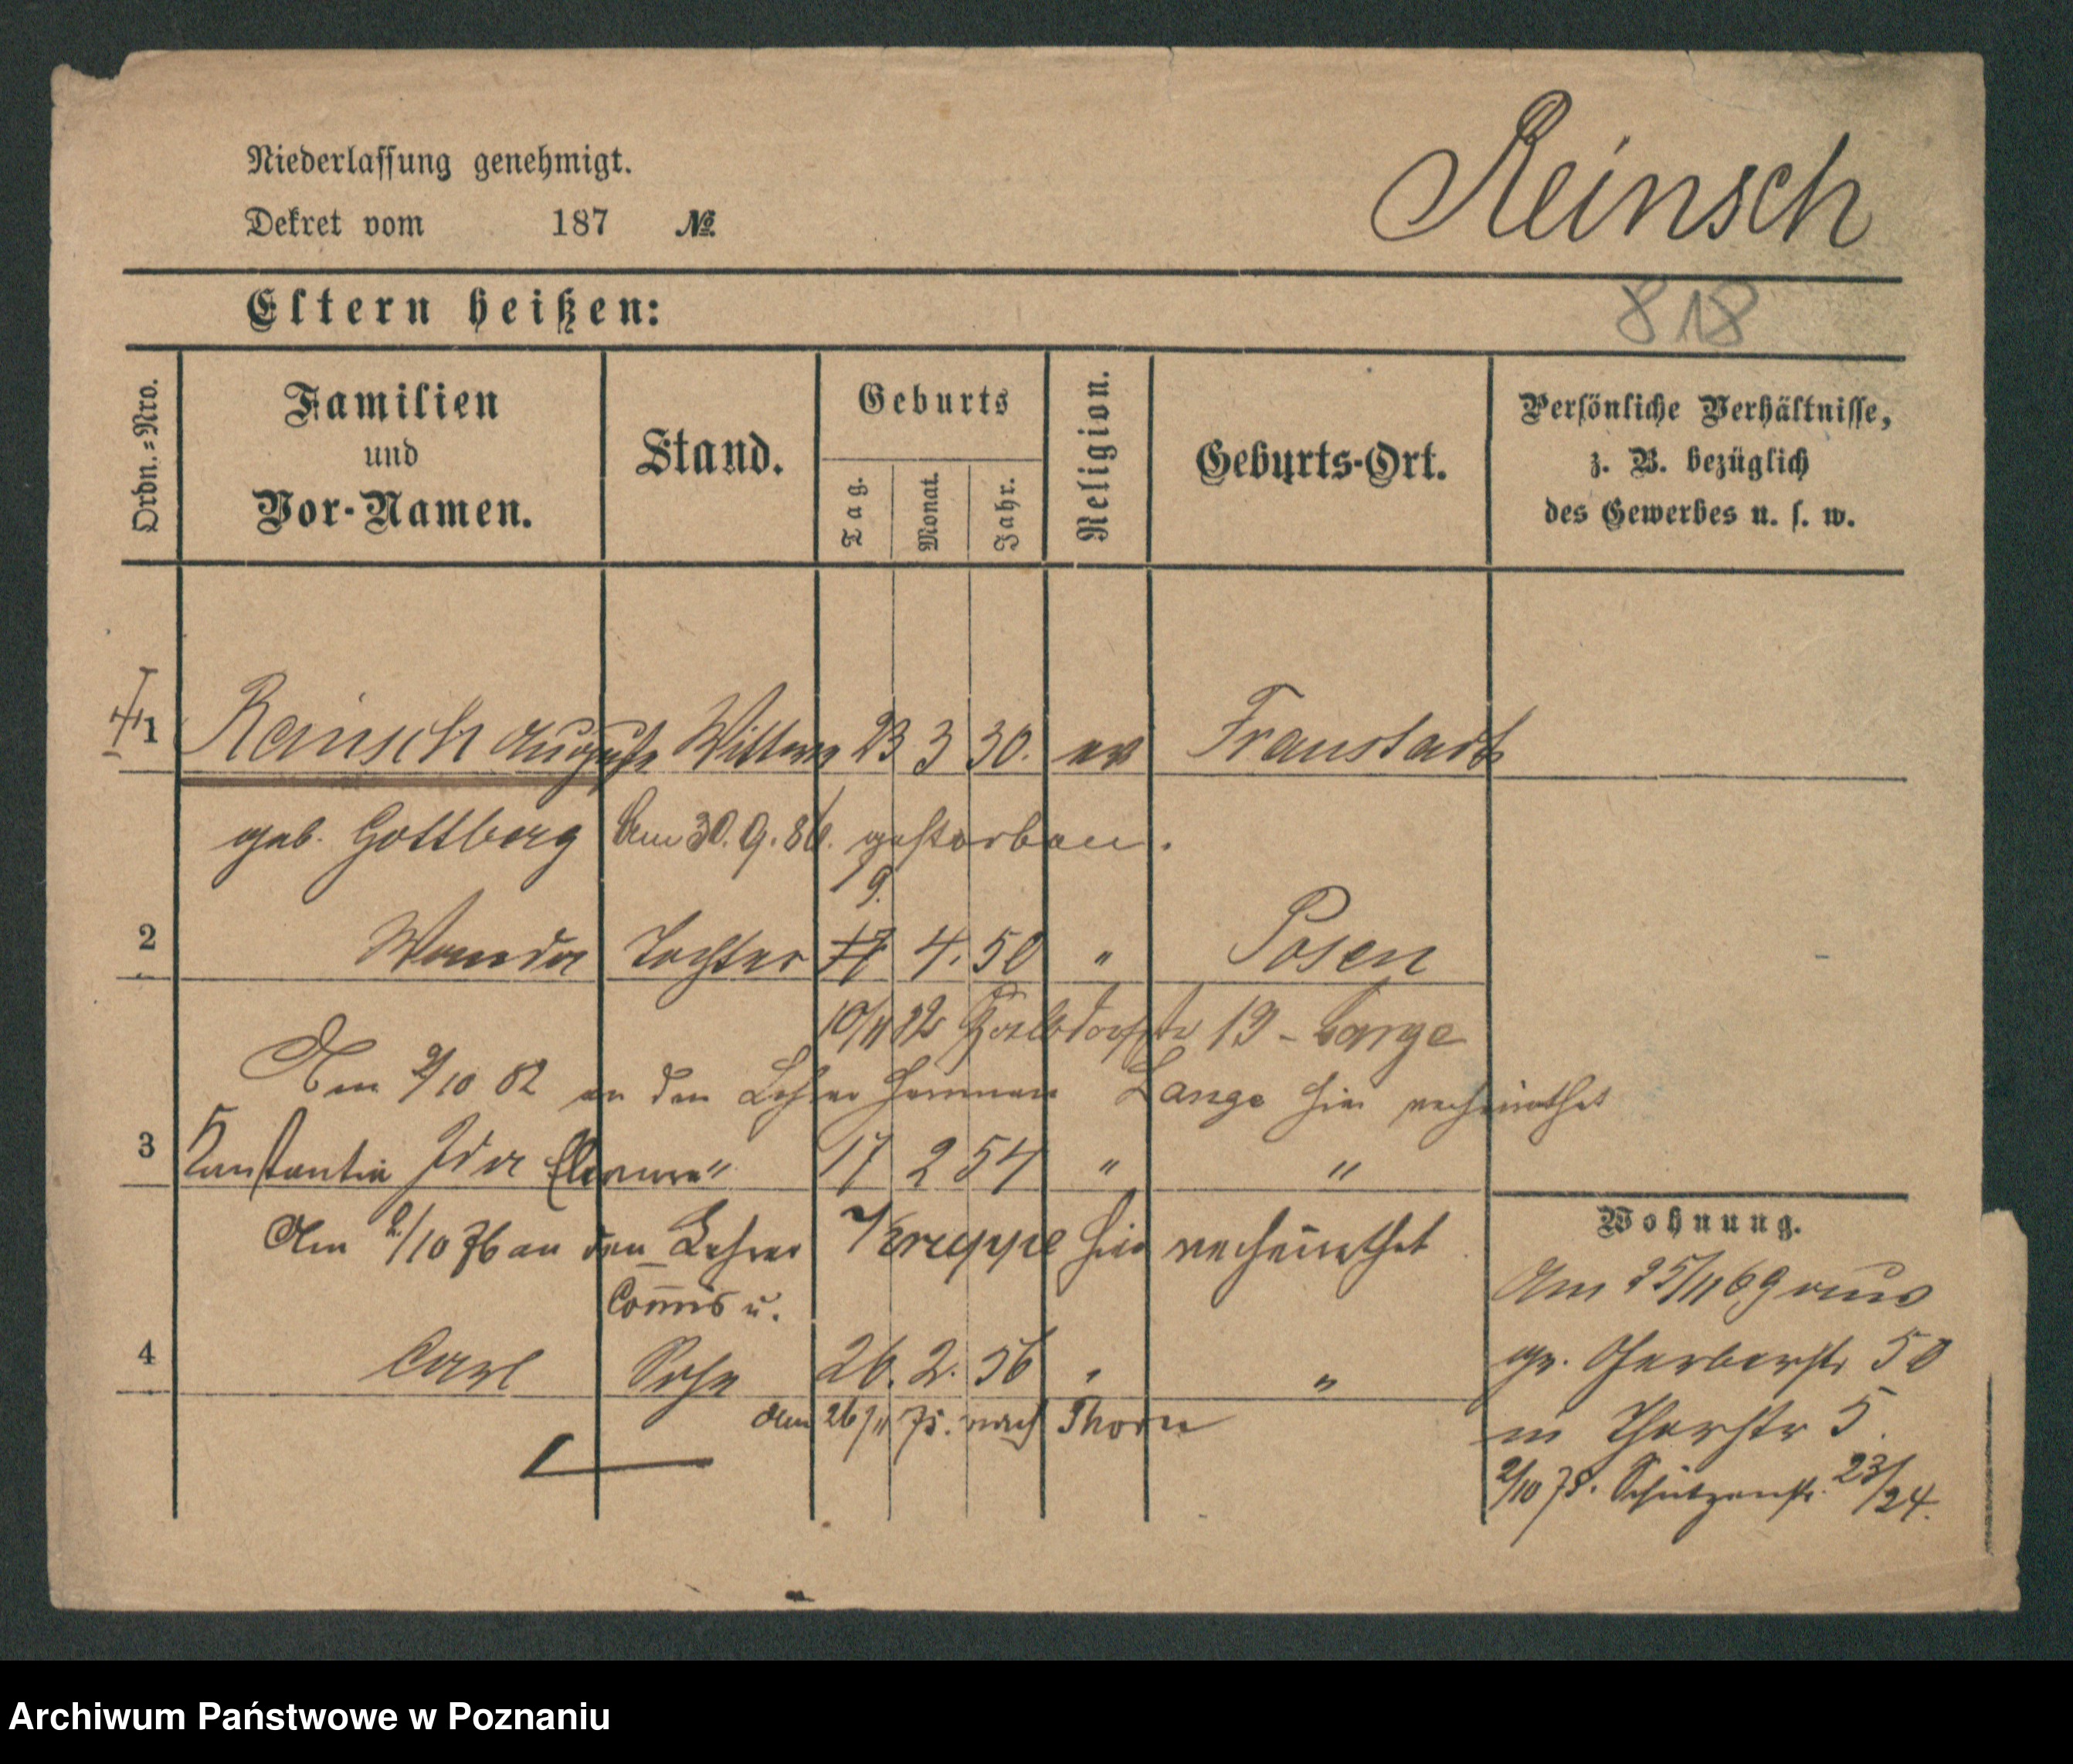 Reinsch
Niederlassung genehmigt.
Dekret vom 187 №.
818
Eltern heißen:
Ordn.=Nro.
Familien
und
Vor-Namen.
Stand.
Geburts
Tag.
Monat.
Jahr.
Religion.
Geburts-Ort.
Persönliche Verhältnisse,
z. B. bezüglich
des Gewerbes u. s. w.
1 Reinsch Auguste Wittwe 23 3 30. ev Fraustadt
geb. Gottberg Am 30. 9. 86. gestorben.
9.
2 Wanda Tochter 17 4. 50 " Posen
10/11 82 19 - Lange
Am 9/10 82 an den Lehrer Herman Lange hier verheirathet
3 Constantia Ida " 17 2 54 " "
Am 2/10 76 an den Lehrer Kruppe hier verheirathet
Comis u.
4 Carl Sohn 26. 2. 56 " "
Am 26/11 75. nach Thorn
Wohnung.
Am 25/11 69 aus
gr. Gerberstr 50
in Thorstr 5.
2/10 78. Schützenstr. 23/24.
Archiwum Państwowe w Poznaniu